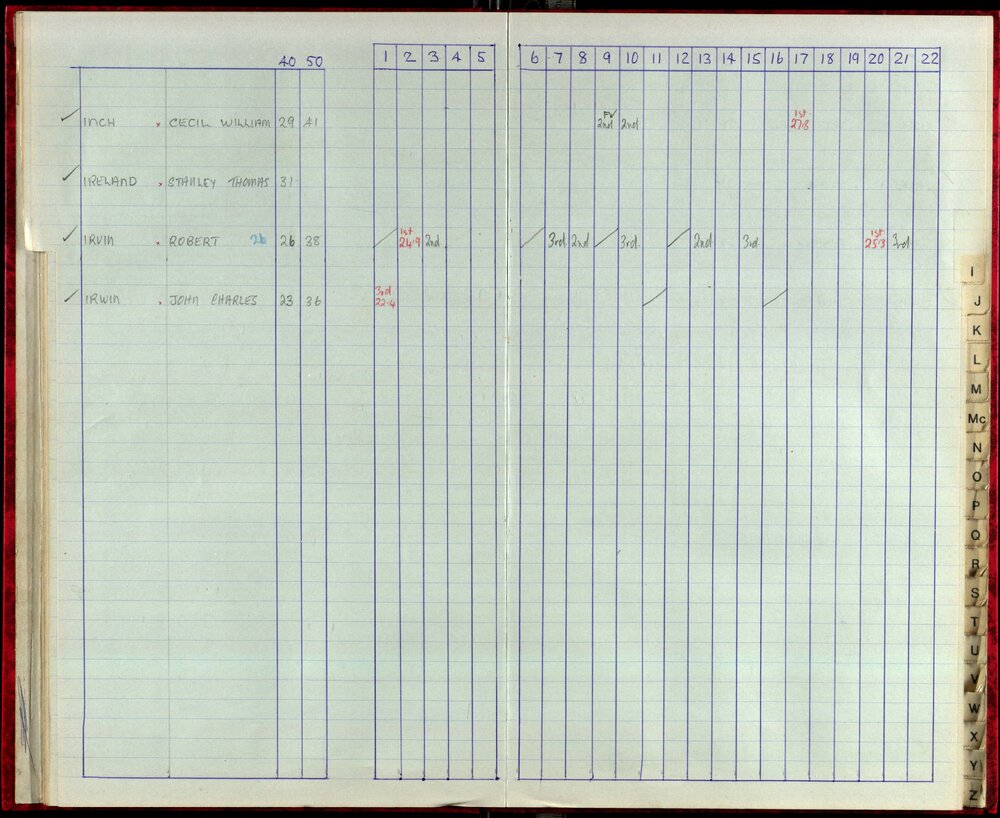 40 50 1 2 3 4 5 6 7 8 9 10 11 12 13 14 15 16 17 18 19 20 21 22
PV 1st
INCH × CECIL WILLIAM 29 41 2nd 2nd 27.8
IRELAND × STANLEY THOMAS 31
1st 1st
IRVIN × ROBERT 26 26 38 24.9 2nd 3rd 2nd 3rd 2nd 3rd 25.3 3rd
3rd
IRWIN × JOHN CHARLES 23 36 22.4
I
J
K
L
M
Mc
N
O
P
Q
R
S
T
U
V
W
X
Y
Z